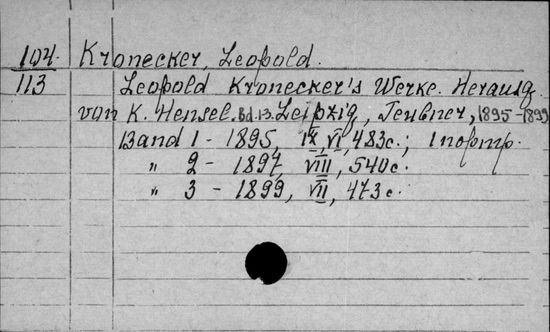 104. Kronecker, Leopold.
113 Leopold Kronecker's Werke. Herausg.
von K. Hensel. Bd. 1-3. Leipzig, Teubner, 1895-1899
Band 1 - 1895, IX, VI, 483c.; 1 порт.
" 2 - 1897, VIII, 540c.
" 3 - 1899, VII, 473c.